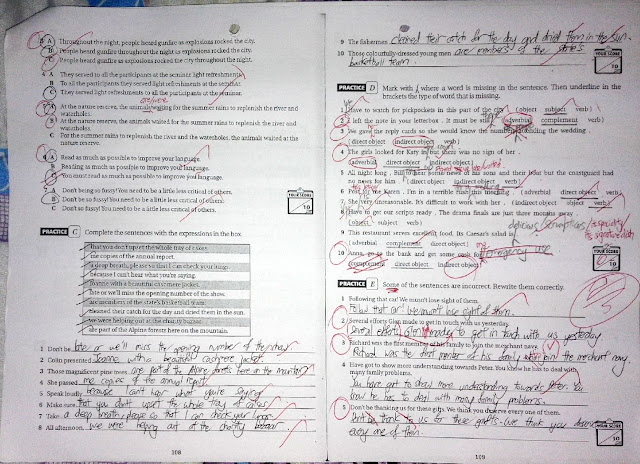 3 A Throughout the night, people heard gunfire as explosions rocked the city.
B People heard gunfire throughout the night as explosions rocked the city.
C People heard gunfire as explosions rocked the city throughout the night.
4 A They served to all the participants at the seminar light refreshments.
B To all the participants they served light refreshments at the seminar.
C They served light refreshments to all the participants at the seminar.
5 A At the nature reserve, the animals waiting for the summer rains to replenish the river and
waterholes.
B At the nature reserve, the animals waited for the summer rains to replenish the river and
waterholes.
C For the summer rains to replenish the river and the waterholes, the animals waited at the
nature reserve.
6 A Read as much as possible to improve your language.
B Reading as much as possible to improve your language.
C You must read as much as possible to improve your language.
7 A Don't being so fussy! You need to be a little less critical of others.
B Don't be so fussy! You need to be a little less critical of others.
C Be so fussy! You need to be a little less critical of others.
YOUR SCORE
10
PRACTICE C Complete the sentences with the expressions in the box.
that you don't upset the whole tray of cakes.
me copies of the annual report.
a deep breath, please so that I can check your lungs.
because I can't hear what you're saying.
Joanne with a beautiful cashmere jacket.
late or we'll miss the opening number of the show.
are members of the state's basketball team.
cleaned their catch for the day and dried them in the sun.
we were helping out at the charity bazaar.
are part of the Alpine forests here on the mountain.
1 Don't be late or we'll miss the opening number of the show.
2 Colin presented Joanne with a beautiful cashmere jacket.
3 Those magnificent pine trees are part of the Alpine forests here on the mountain.
4 She passed me copies of the annual report.
5 Speak loudly because I can't hear what you're saying.
6 Make sure that you don't upset the whole tray of cakes.
7 Take a deep breath, please so that I can check your lungs.
8 All afternoon, we were helping out at the charity bazaar.
108
9 The fishermen cleaned their catch for the day and dried them in the sun.
10 Those colourfully-dressed young men are members of the state's
basketball team.
YOUR SCORE
10
PRACTICE D Mark with where a word is missing in the sentence. Then underline in the
brackets the type of word that is missing.
1 Have to watch for pickpockets in this part of the city. (object subject verb)
2 I left the note in your letterbox. It must be still. (adverbial complement verb)
3 We gave the reply cards so she would know the number attending the wedding.
(direct object indirect object verb)
4 The girls looked for Kary in but there was no sign of her.
(adverbial direct object indirect object)
5 All night long, but to hear some news of his sons and their boat but the coastguard had
no news for him. (indirect object verb)
6 Post for Karen. I'm in a terrible rush this morning. (adverbial direct object verb)
7 She very unreasonable. It's difficult to work with her. (indirect object object verb)
8 Have to get our scripts ready. The drama finals are just three months away.
(object subject verb)
9 This restaurant serves excellent food. Its Caesar's salad is
(adverbial complement direct object)
10 Anna, go to the bank and get some cash for emergency use
(complement direct object indirect object)
YOUR SCORE
10
PRACTICE E Some of the sentences are incorrect. Rewrite them correctly.
1 Following that car! We mustn't lose sight of them.
Follow that car! We mustn't lose sight of them.
2 Several efforts Gian made to get in touch with us yesterday.
3 Richard was the first member of his family to join the merchant navy.
Richard was the first member of his family join the merchant navy.
4 Have got to show more understanding towards Peter. You know he has to deal with
many family problems.
You have got to show more understanding towards Peter. You
know he has to deal with many family problems.
5 Don't be thanking us for these gifts. We think you deserve every one of them.
Don't be thank to us for these gifts. We think you deserve
every one of them.
109